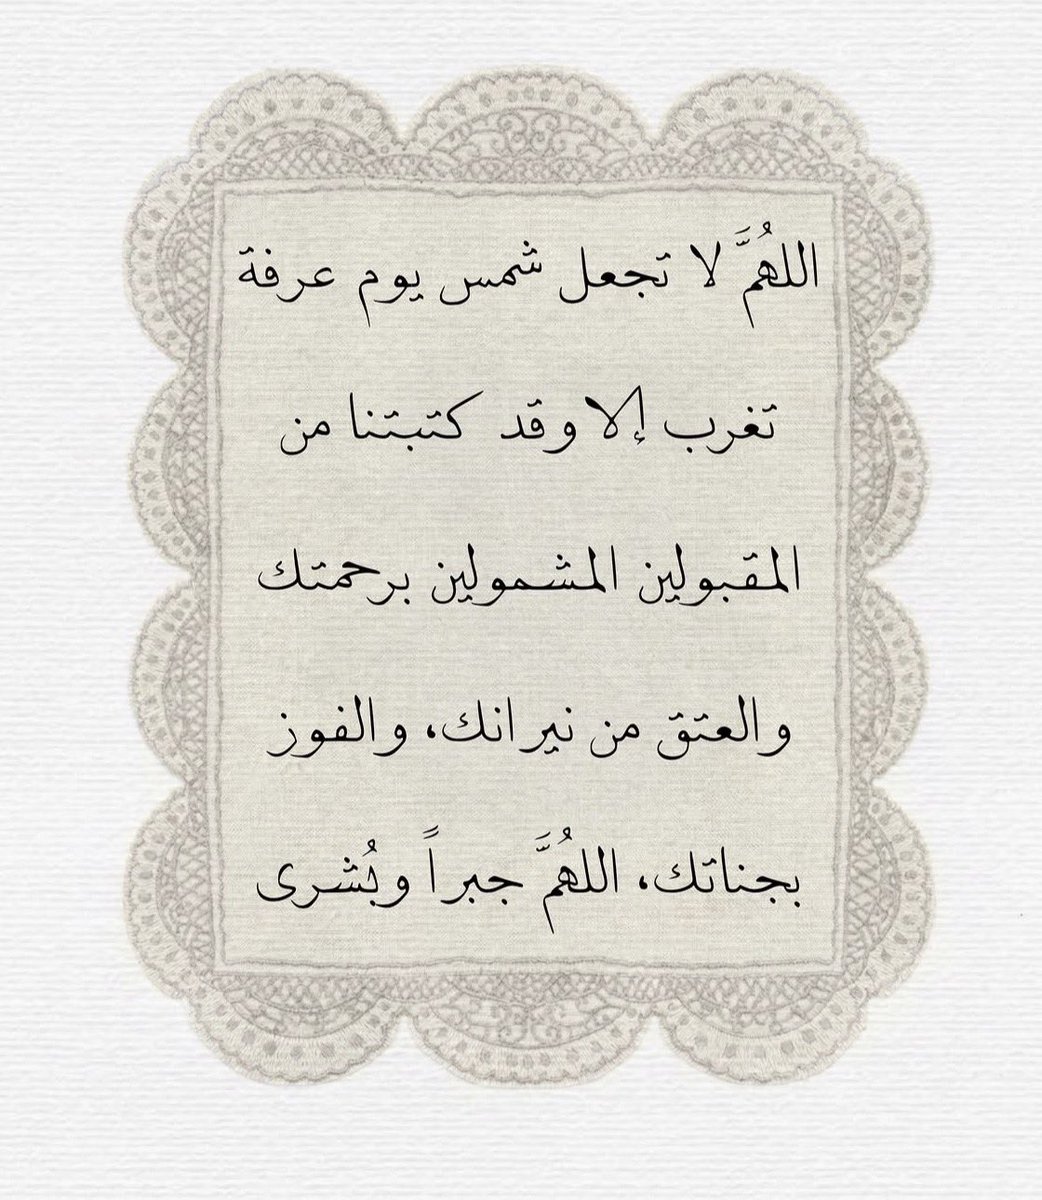 اللهُمَّ لا تجعل شمس يوم عرفة
تغرب إلا وقد كتبتنا من
المقبولين المشمولين برحمتك
والعتق من نيرانك، والفوز
بجناتك، اللهُمَّ جبراً وبُشرى